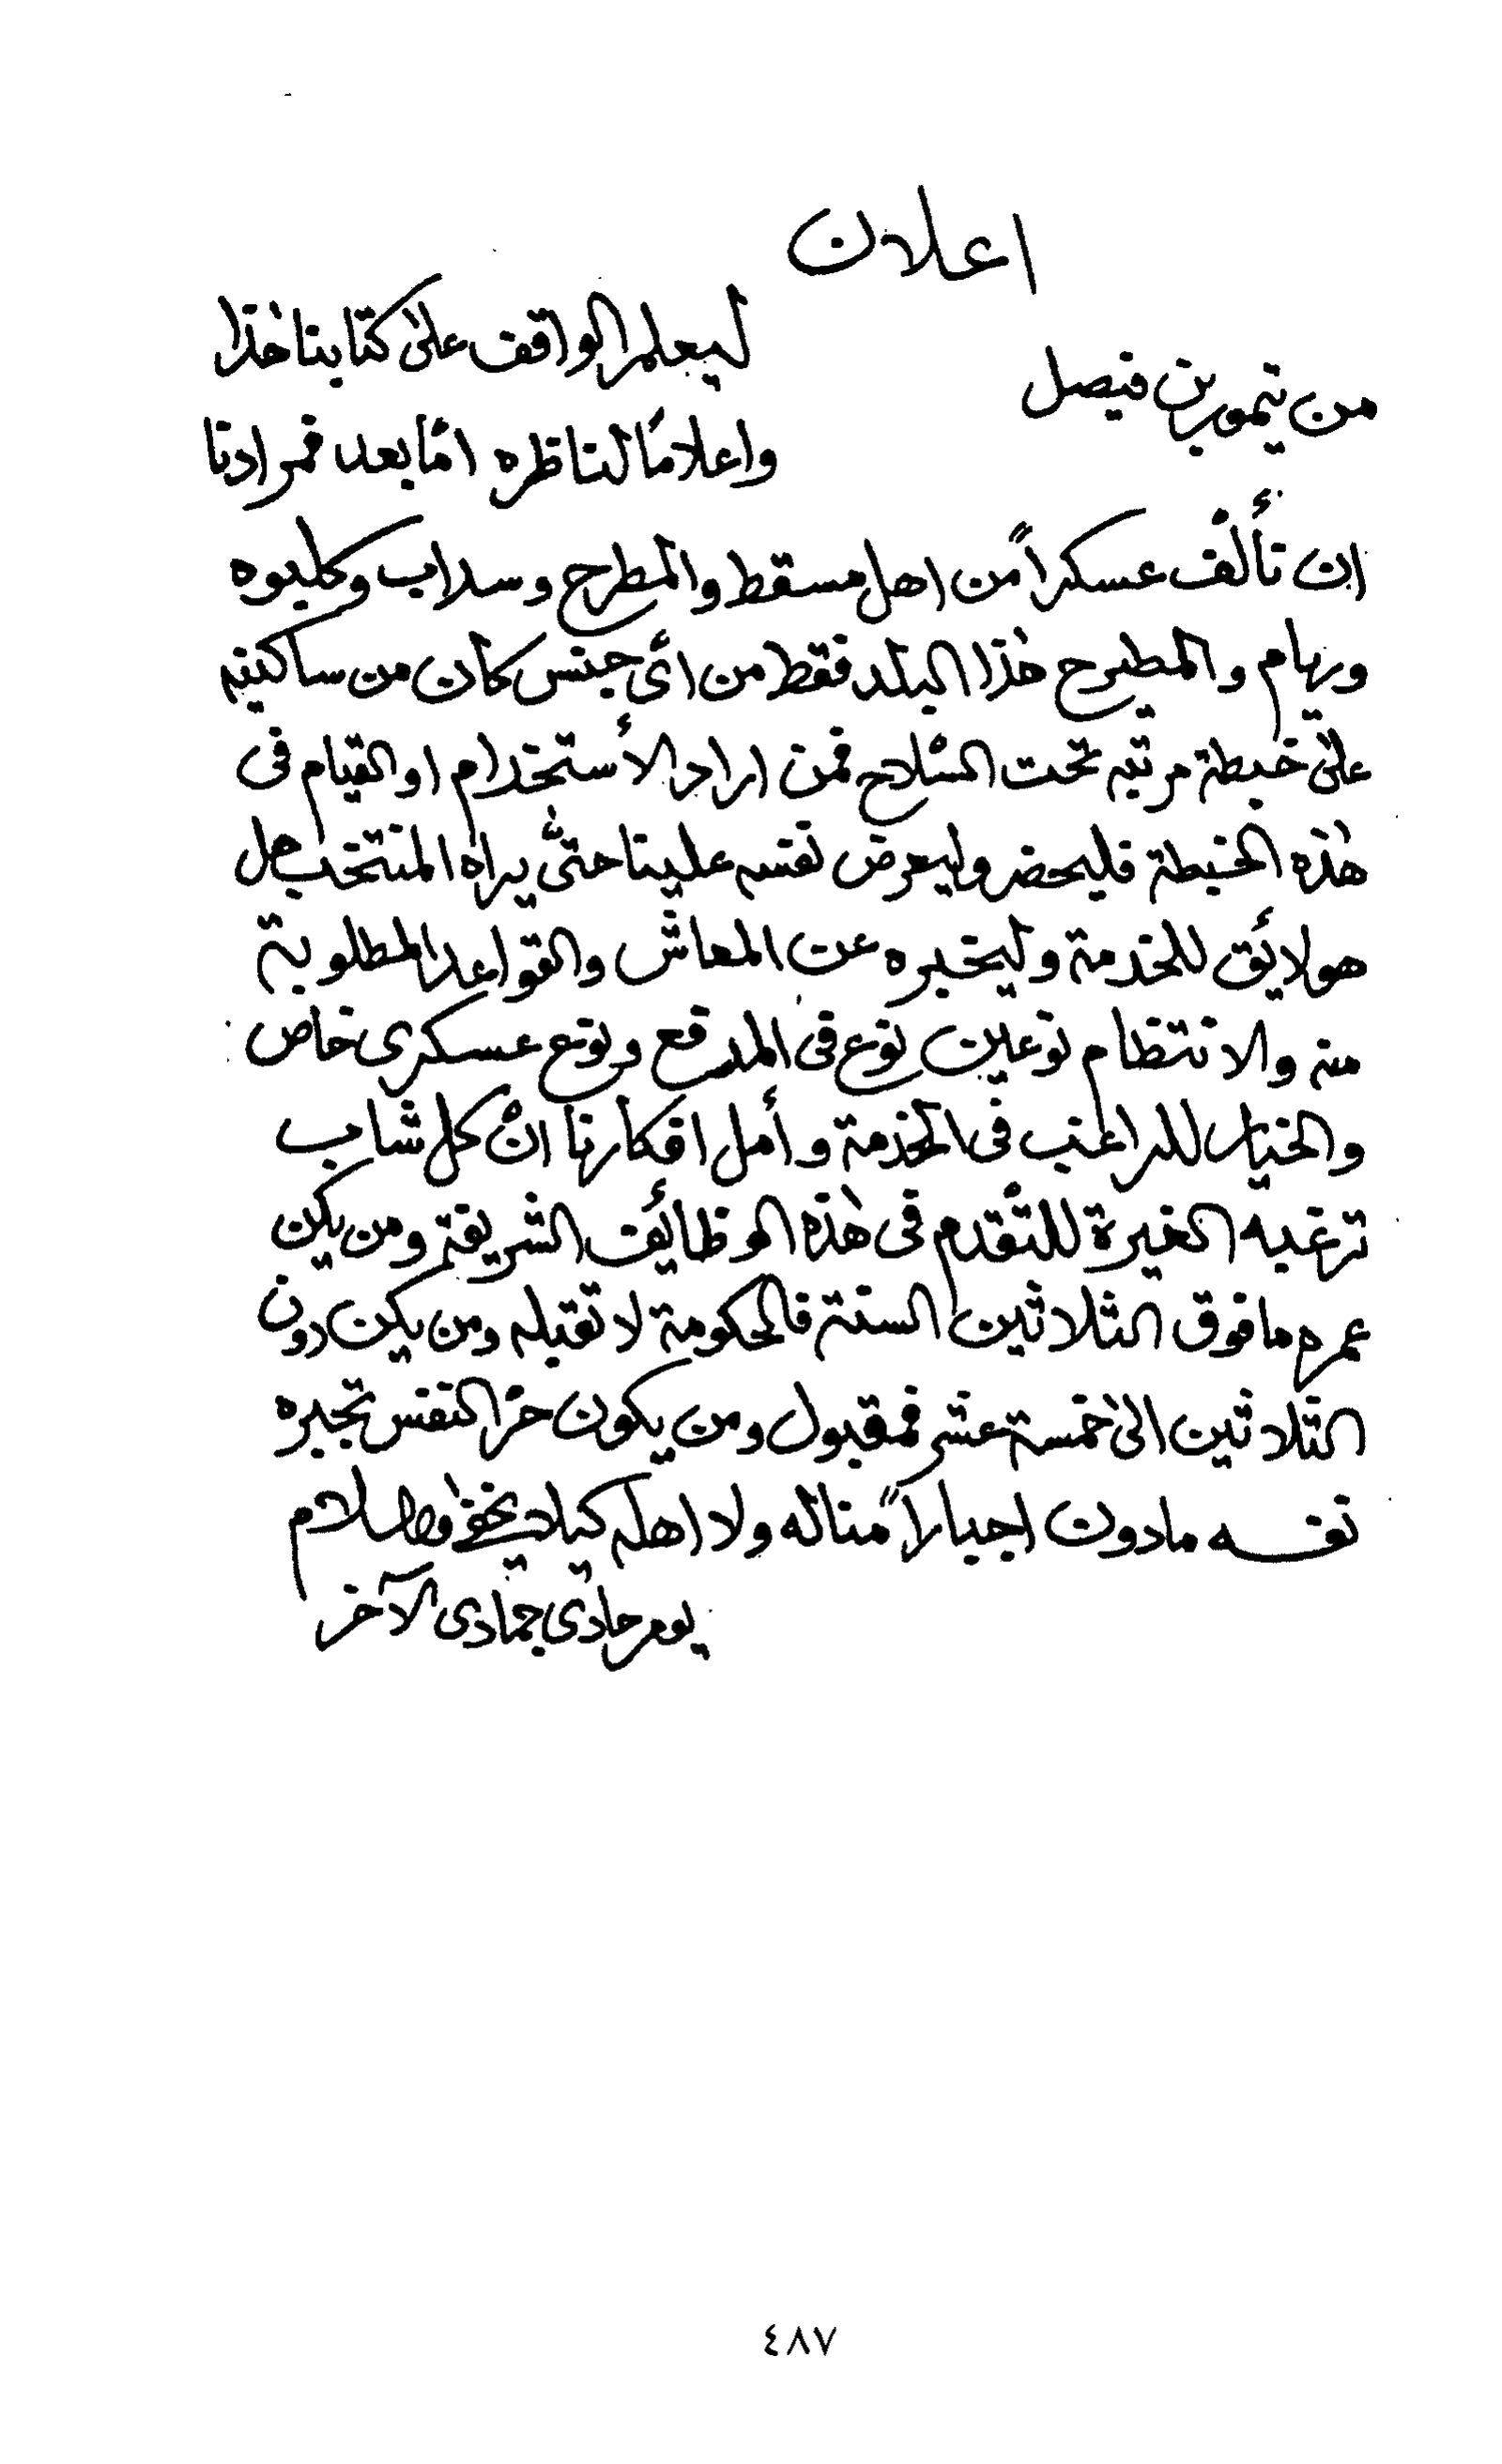 اعلان
من تيمور بن فيصل
ليعلم الواقف على كتابنا هذا
واعلامًا لناظره امّا بعد فمرادنا
ان نألّف عسكراً من اهل مسقط والمطرح وسداب وكلبوه
وريام والمطيرح هذا البلد فقط من اىّ جنس كان من ساكنيه
على خبطة مرتبه تحت السّلاح فمن اراد الأستخدام او القيام فى
هذه الخبطة فليحضر وليعرض نفسه علينا حتىّ يراه المنتخب هل
هو لائق للخدمة وليخبره عن المعاش والقواعد المطلوبة
منه والانتظام نوعين نوع فى المدفع ونوع عسكرى خاص
والخيار للراغب فى الخدمة وأمل افكارنا انّ كل شاب
ترغبه الغيرة للتقدم فى هذه الوظائف الشريفة ومن يكن
عمره ما فوق الثلاثين السنة فالحكومة لا تقبله ومن يكن دون
الثلاثين الى خمسة عشر فمقبول ومن يكون حرّ النفس تجبره
نفسه مادون اجباراً مناله ولا اهله كيلا يخفى والسلام
يوم حادى جمادى الآخر
٤٨٧